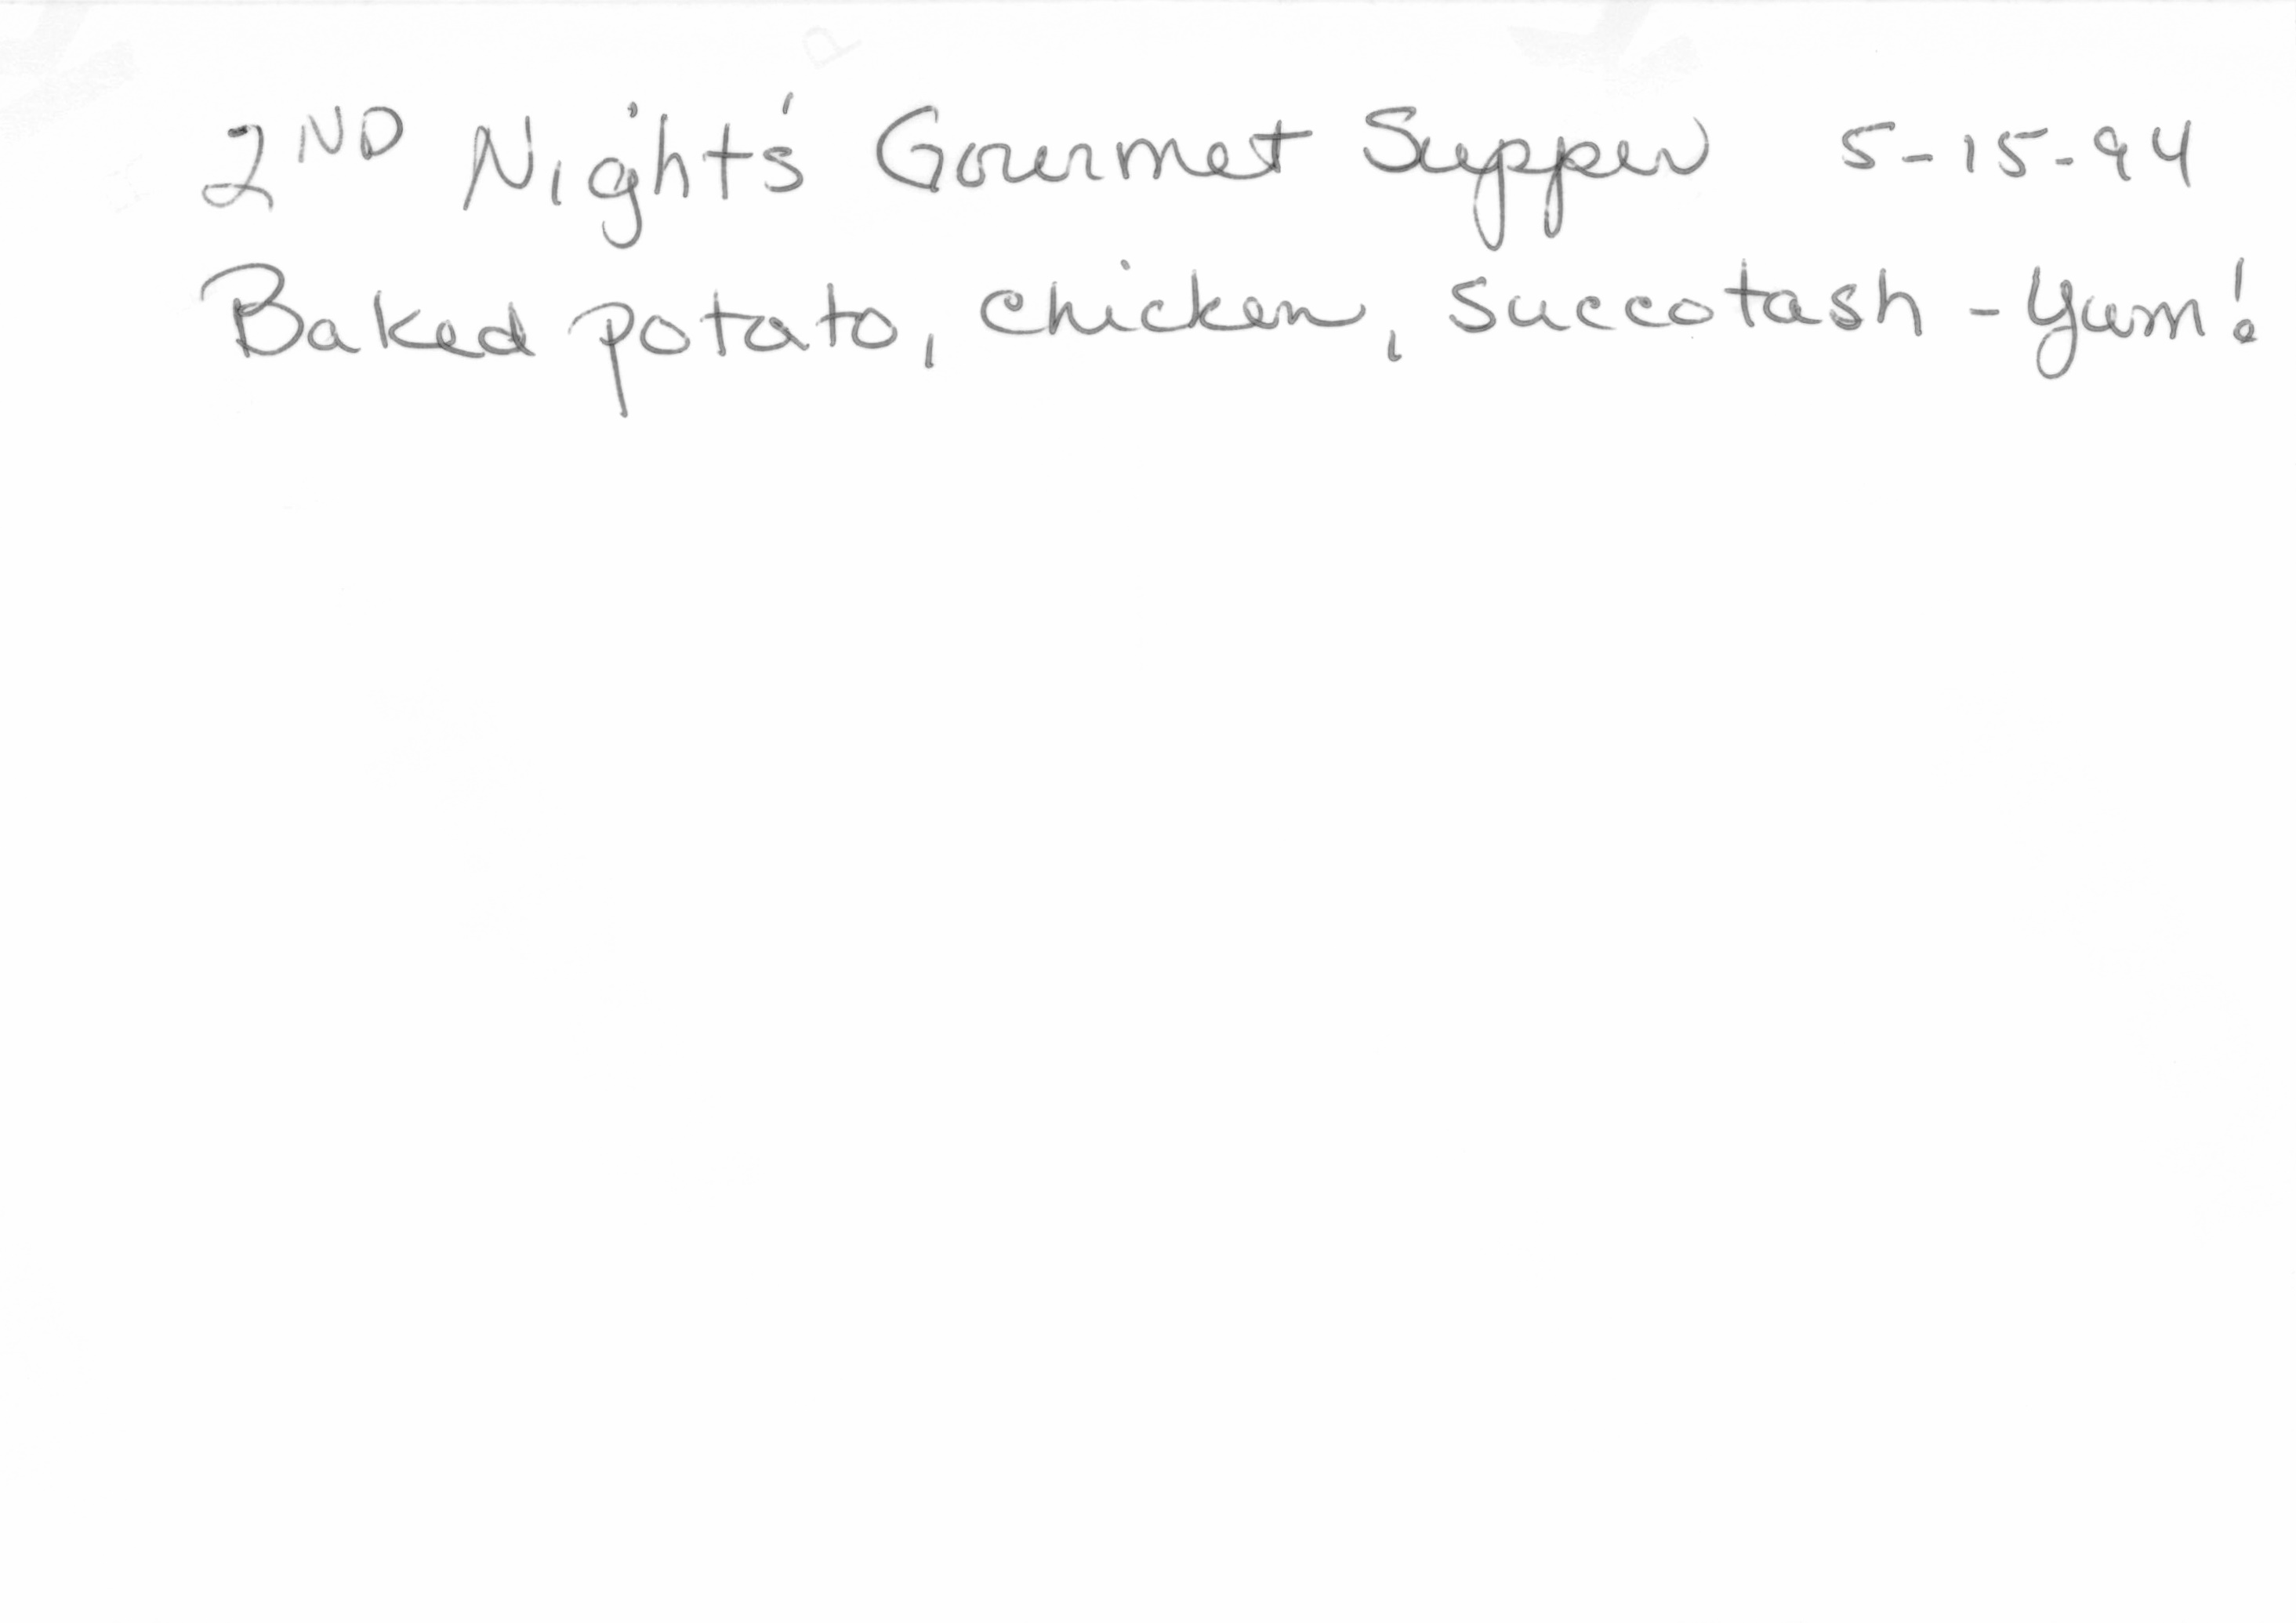 2ND Night's Gourmet Supper 5-15-94
Baked potato, chicken, succotash - Yum!